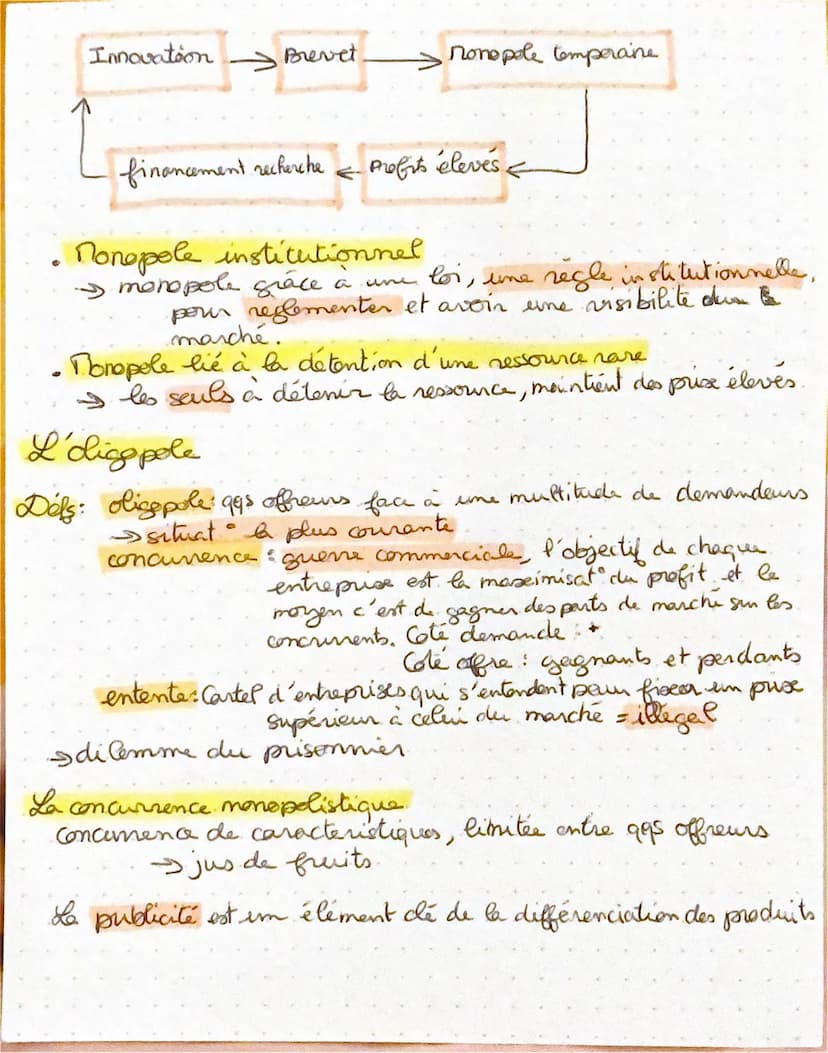 Innovation → Brevet → Monopole temporaire
financement recherche ← Profits élevés
. Monopole institutionnel
→ monopole grâce à une loi, une règle institutionnelle,
pour réglementer et avoir une visibilité du
marché.
. Monopole lié à la détention d'une ressource rare
→ les seuls à détenir la ressource, maintient des prix élevés.
L'oligopole
Défs: oligopole: qqs offreurs face à une multitude de demandeurs
→ situat° la plus courante
concurrence : guerre commerciale, l'objectif de chaque
entreprise est la maximisat° du profit et le
moyen c'est de gagner des parts de marché sur les
concurrents. Coté demande : +
Coté offre : gagnants et perdants
entente: Cartel d'entreprises qui s'entendent pour fixer un prix
supérieur à celui du marché = illégal
→ dilemme du prisonnier
La concurrence monopolistique
concurrence de caractéristiques, limitée entre qqs offreurs
→ jus de fruits
La publicité est un élément clé de la différenciation des produits